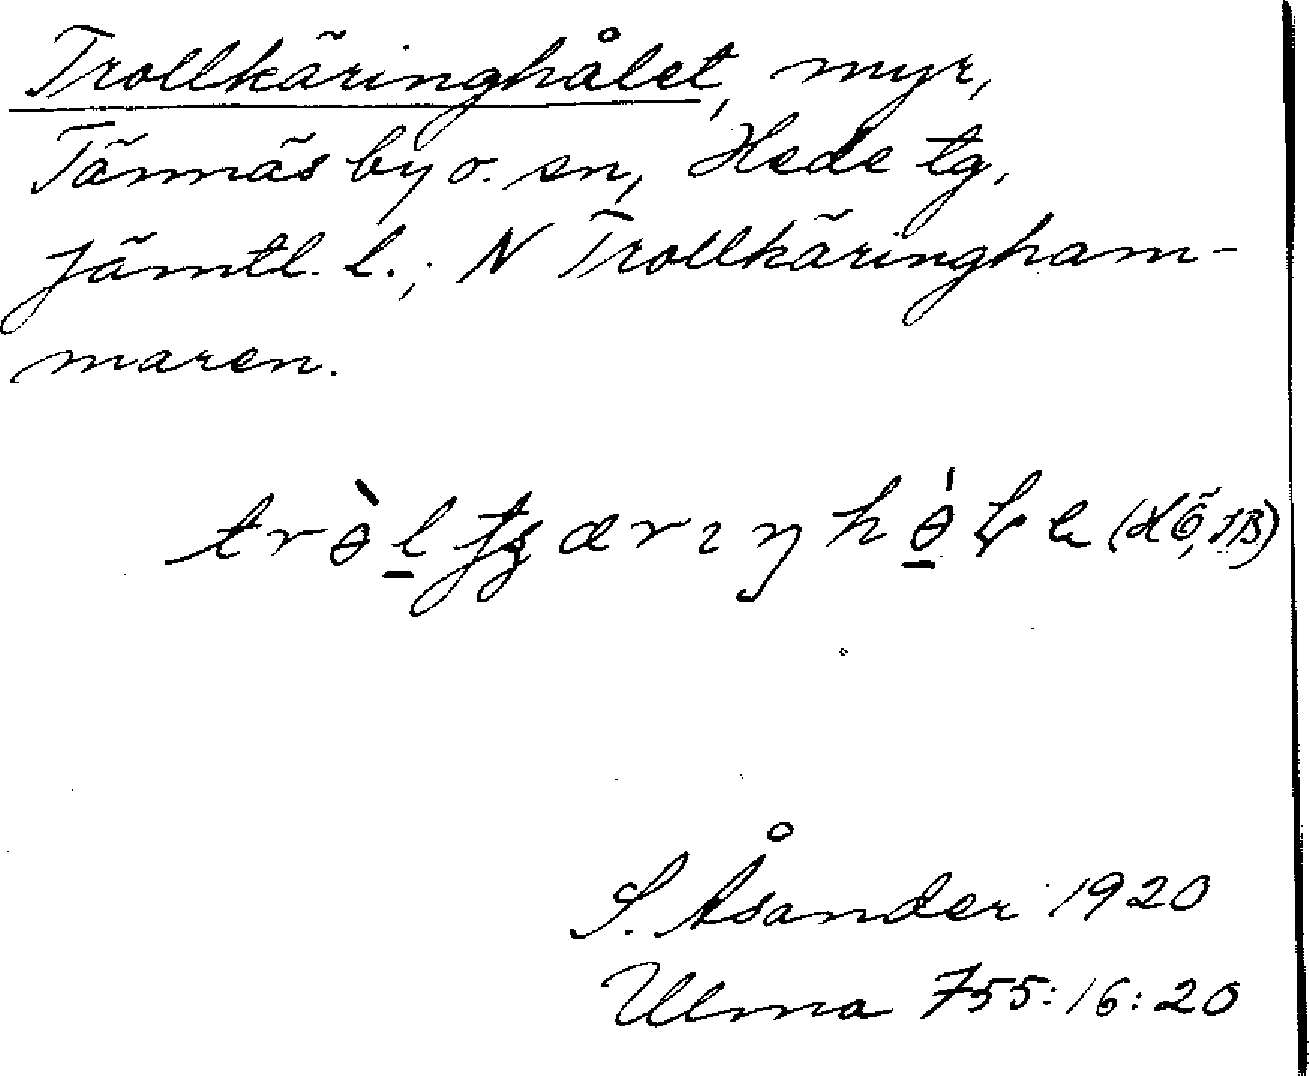 Trollkäringhålet, myr,
Tännäs by o. sn, Hede tg,
Jämtl. l.; N Trollkäringham-
maren.
S. Åsander 1920
Ulma 755:16:20